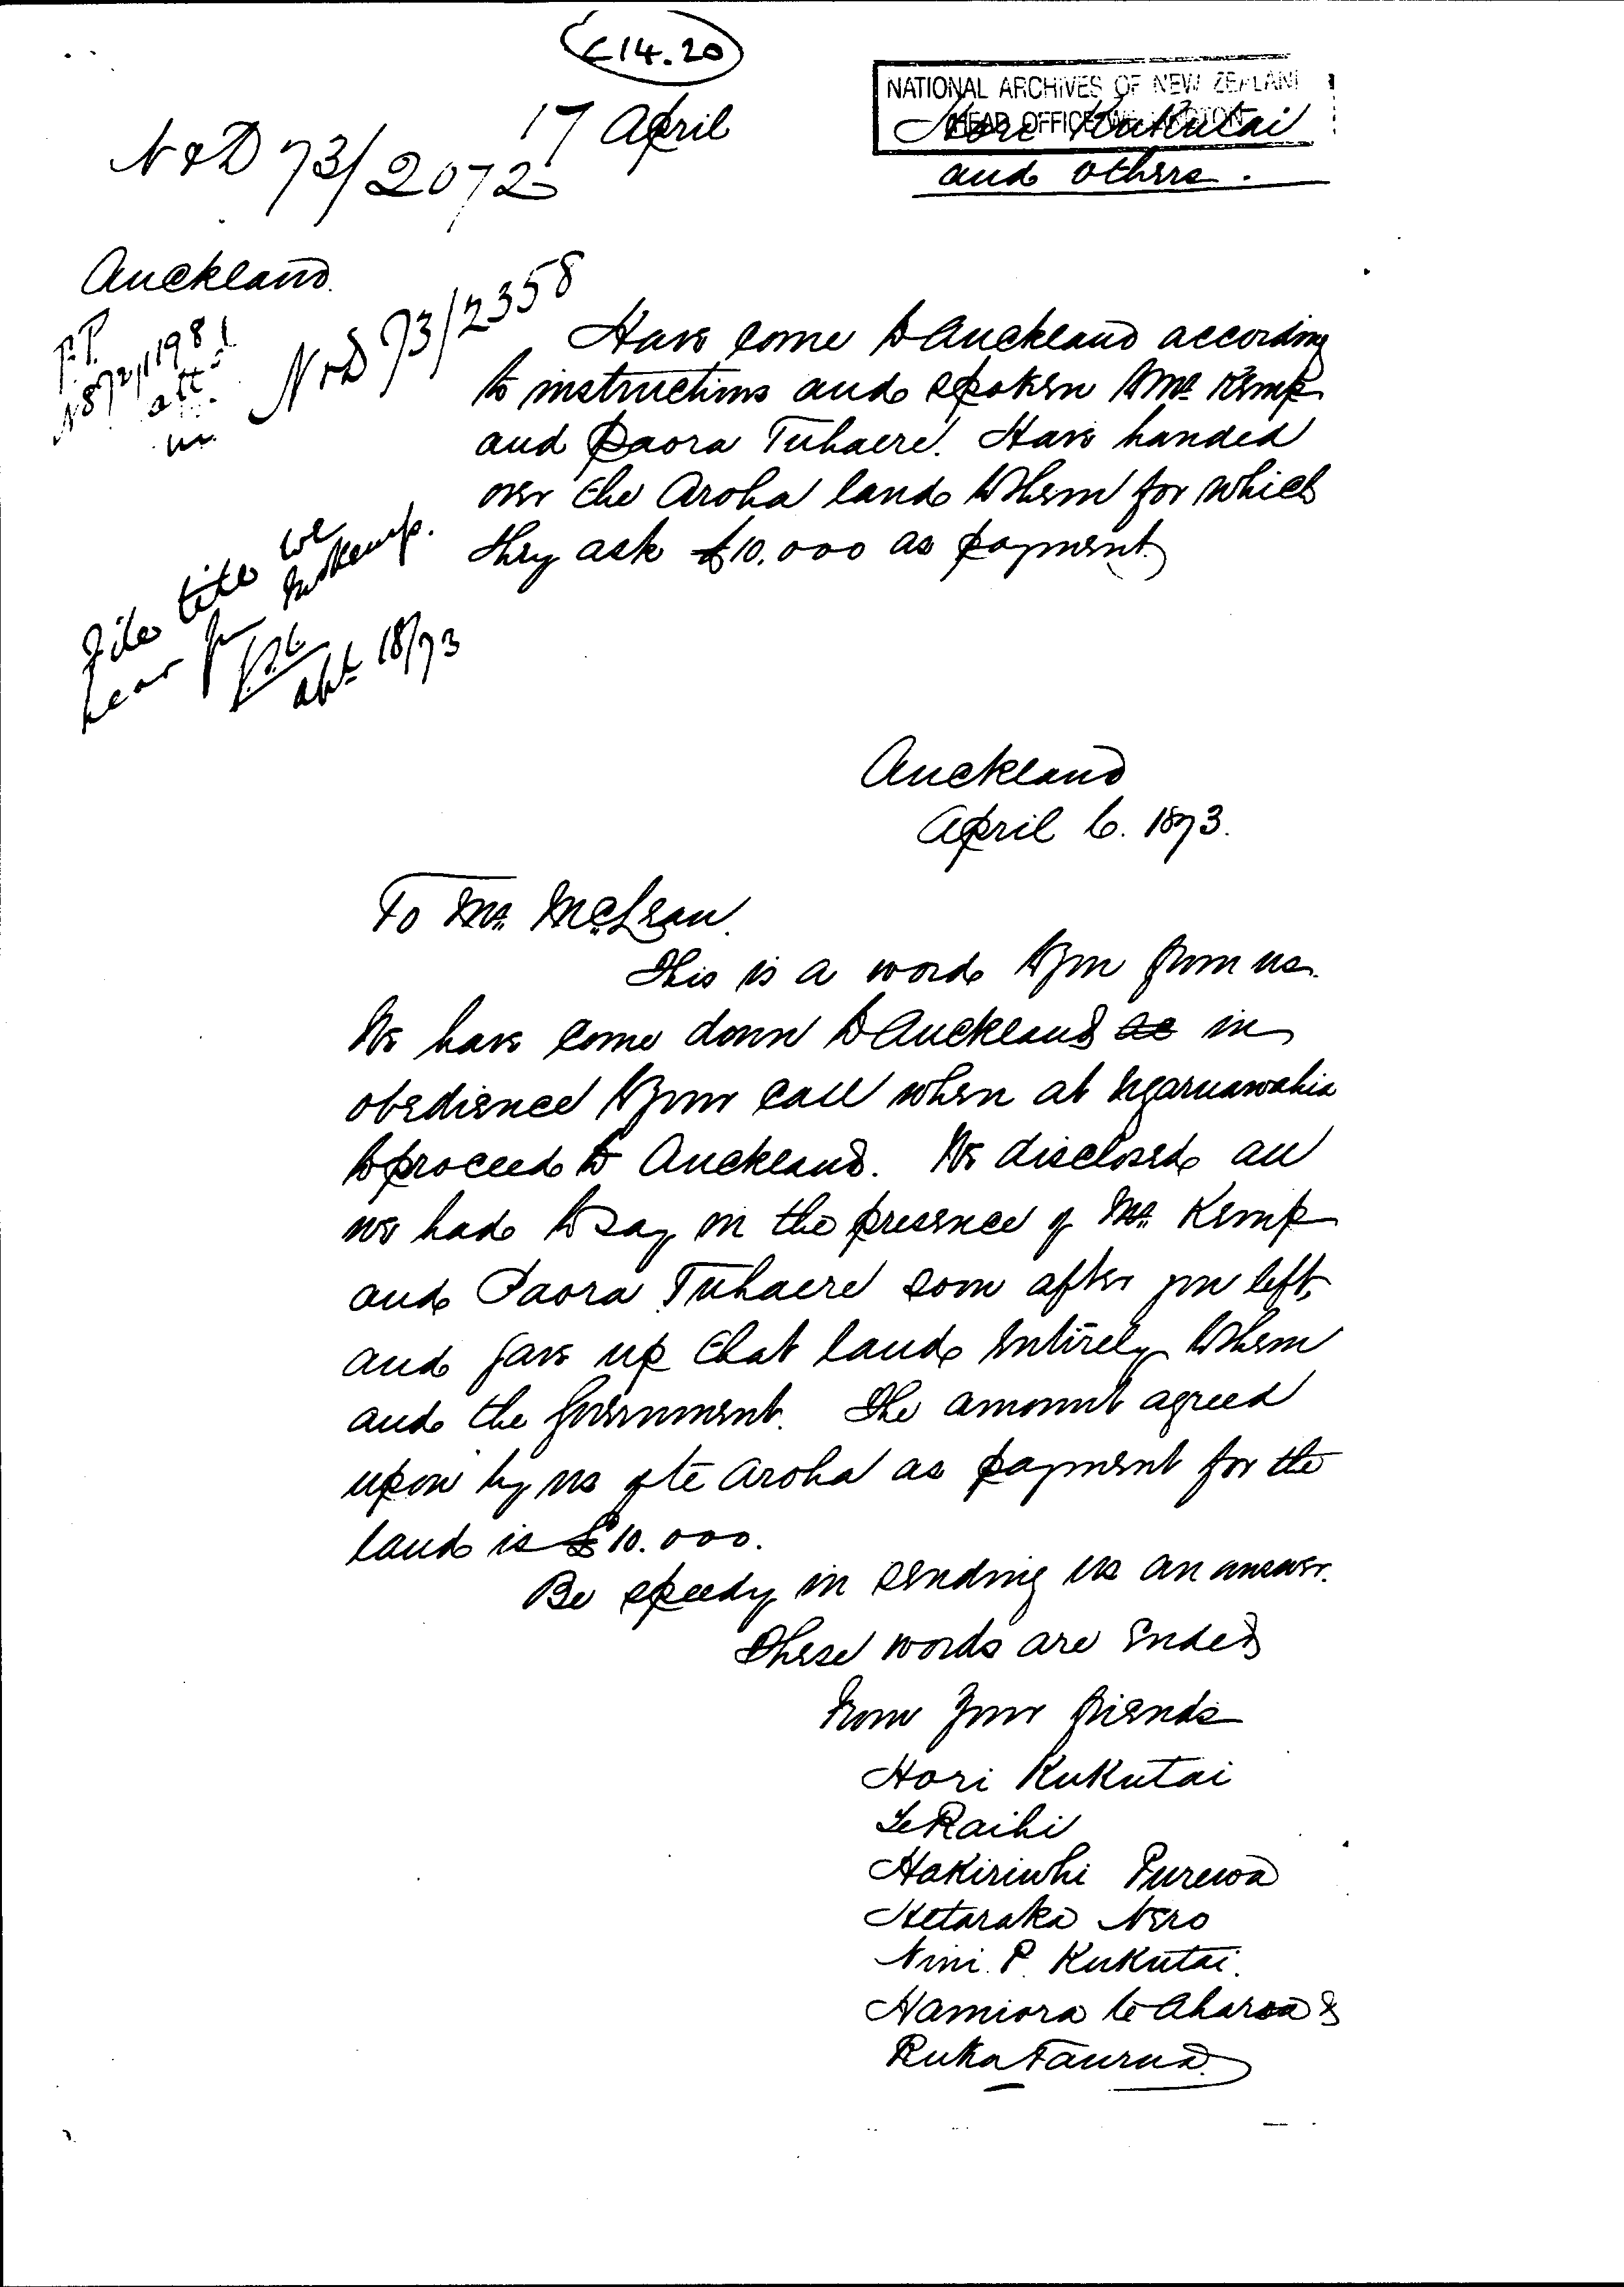 C14.20
17 April
N & D 73/2072
NATIONAL ARCHIVES OF NEW ZEALAND
HEAD OFFICE WELLINGTON
Hori Kukutai
and others.
Auckland.
N & D 73/2358
F.P.
N872/1198
att
Have come to Auckland according
to instructions and spoken to Mr. Kemp
and Paora Tuhaere. Have handed
over the Aroha land to them for which
they ask £10.000 as payment.
File till we
hear from Mr Kemp.
18/73
Auckland
April 6. 1873.
To Mr. McLean.
This is a word to you from us.
We have come down to Auckland in
obedience to your call when at Ngaruawahia
to proceed to Auckland. We disclosed all
we had to say in the presence of Mr. Kemp
and Paora Tuhaere soon after you left,
and gave up that land entirely to them
and the Government. The amount agreed
upon by us of te Aroha as payment for the
land is £10.000.
Be speedy in sending us an answer.
These words are ended
From your friends
Hori Kukutai
Te Raihi
Hakiriwhi Purewa
Hetaraka Nero
Nini. P. Kukutai.
Hamiora te &
Ruka Taurua.